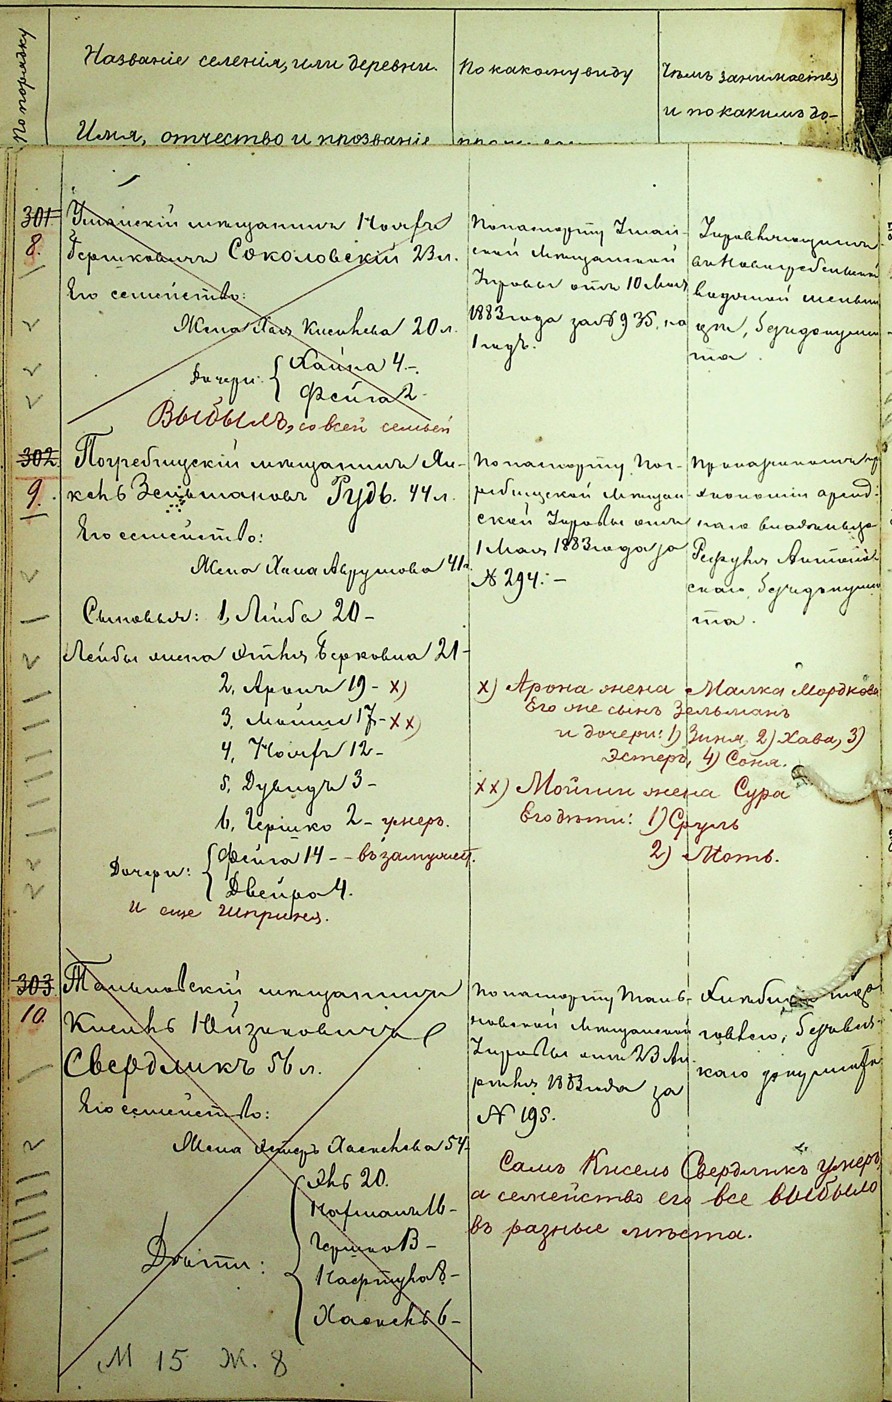 По порядку
Названіе селенія, или деревни.
Имя, отчество и прозваніе
По какому виду
Чѣмъ занимается
и по какимъ до-
301
8.
Уманскій мѣщанинъ Іосифъ
Гершковичъ Соколовскій 23 л.
Его семейство:
Жена Хая Кисилева 20 л.
Дочери: Хайка 4 -
Фейга 2
Выбылъ, со всей семьей
По паспорту Уман-
ской Мѣщанской
Управы отъ 10 Мая
1883 года за № 936, на
1 годъ.
Управляющимъ
безъ докумен-
та.
302
9.
Погребищскій мѣщанинъ Ян-
кель Зельмановъ Рудь. 44 л.
Его семейство:
Жена Хана Аврумова 41 л.
Сыновья: 1, Лейба 20 -
Лейбы жена Берковна 21 -
2, Аронъ 19 - х)
3, Мойше 17 - хх)
4, Іосифъ 12 -
5, Дувидъ 3 -
6, Гершко 2 - умеръ.
Дочери: Фейга 14 - - въ замужест.
Двейра 4.
и еще Шпринця.
По паспорту По-
гребищской Мѣщан-
ской Управы отъ
1 Мая 1883 года за
№ 294. -
безъ докумен-
та.
х) Арона жена Малка Мордкова
Его же сынъ Зельманъ
и дочери: 1) Зиня, 2) Хава, 3)
Эстеръ, 4) Соня.
хх) Мойши жена Сура
Его дѣти: 1) Сруль
2) Моть.
303
10.
Тальновскій мѣщанинъ
Кисель Ицковичъ
Свердликъ 56 л.
Его семейство:
Жена Эстеръ Хаскелева 54 -
Дѣти:
20.
16 -
Гершко 13 -
Нафтула 8 -
Хаскель 6 -
По паспорту Таль-
новской Мѣщанской
Управы отъ 23 Ап-
рѣля 1883 года за
№ 195.
Хлѣбною тор-
говлею, безъ вся-
каго документа
Самъ Кисель Свердликъ умеръ,
а семейство его все выбыло
въ разные мѣста.
М 15 Ж. 8